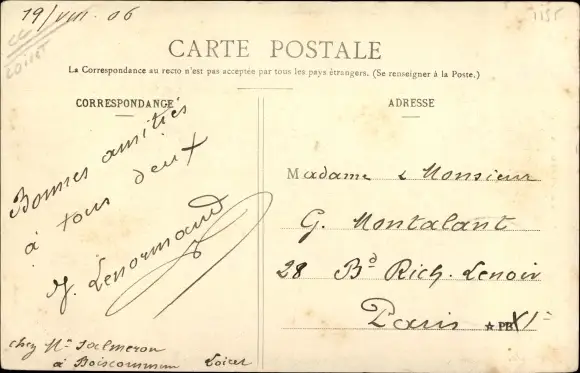 19/VIII. 06
1155
Loiret
CARTE POSTALE
La Correspondance au recto n'est pas acceptée par tous les pays étrangers. (Se renseigner à la Poste.)
CORRESPONDANCE
Bonnes amitiés
à tous deux
Lenormand
chez Mr Salmeron
à Boiscommun Loiret
ADRESSE
Madame & Monsieur
G. Montalant
28 Bd Rich. Lenoir
Paris XIe